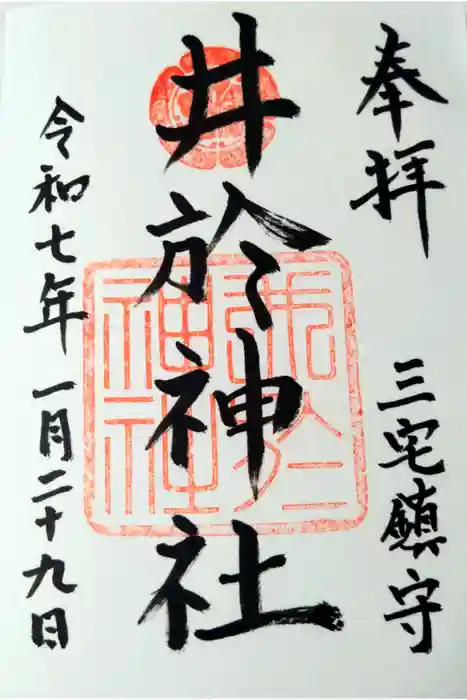 奉拝
三宅鎮守
井於神社
井於神社
令和七年一月二十九日